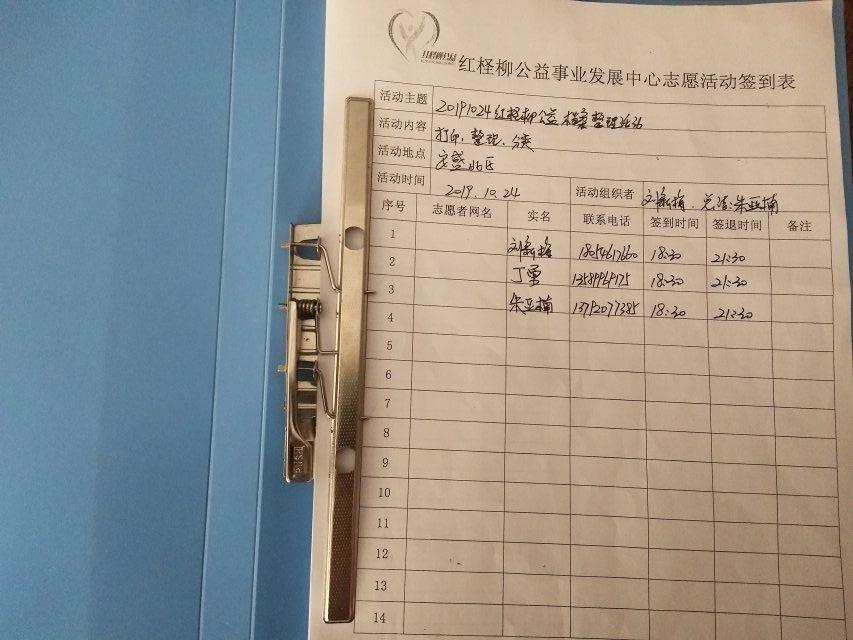 红柽柳公益事业发展中心志愿活动签到表
活动主题 20191024红柽柳公益档案整理活动
活动内容 打印、整理、分类
活动地点
活动时间 2019.10.24 活动组织者
序号 志愿者网名 实名 联系电话 签到时间 签退时间 备注
1 刘新梅 18:30 21:30
2 丁军 13589969175 18:30 21:30
3 朱亚楠 13792077385 18:30 21:30
4
5
6
7
8
9
10
11
12
13
14
PUSH